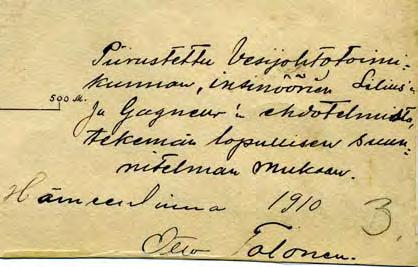 Piirustettu Vesijohtotoimi-
kunnan, insinöörien Lilius'in
ja Gagneur'in ehdotelmista
500 M.
tekemän lopullisen suun-
nitelman mukaan.
Hämeenlinna 1910
3.
Otto Tolonen.